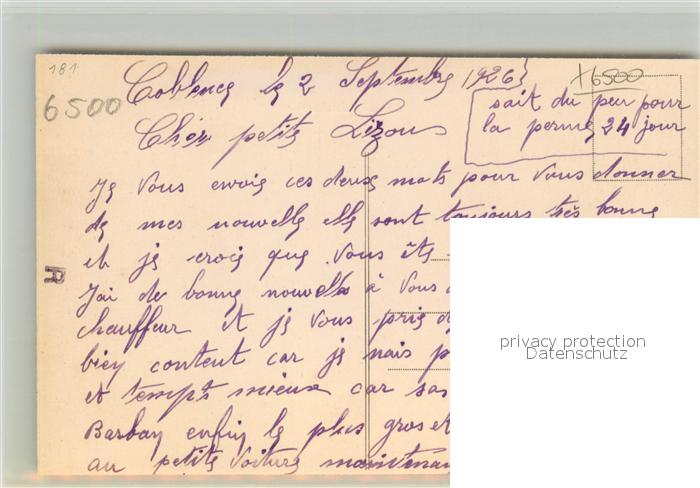 181
6500
+6500
Coblence le 2 Septembre 1926
sait du peu pour
la perme 24 jour
Chér petits Lizous
Je Vous envoie ces deux mots pour Vous donner
de mes nouvelle elle sont toujours très bonne
et je crois que Vous êts
J'ai de bonne nouvelle à Vous
chauffeur et je Vous pris
bien content car je nais p
et temps mieux car sa
Barbay enfin le plus gros et
au petits Voiture maintenan
R
privacy protection
Datenschutz